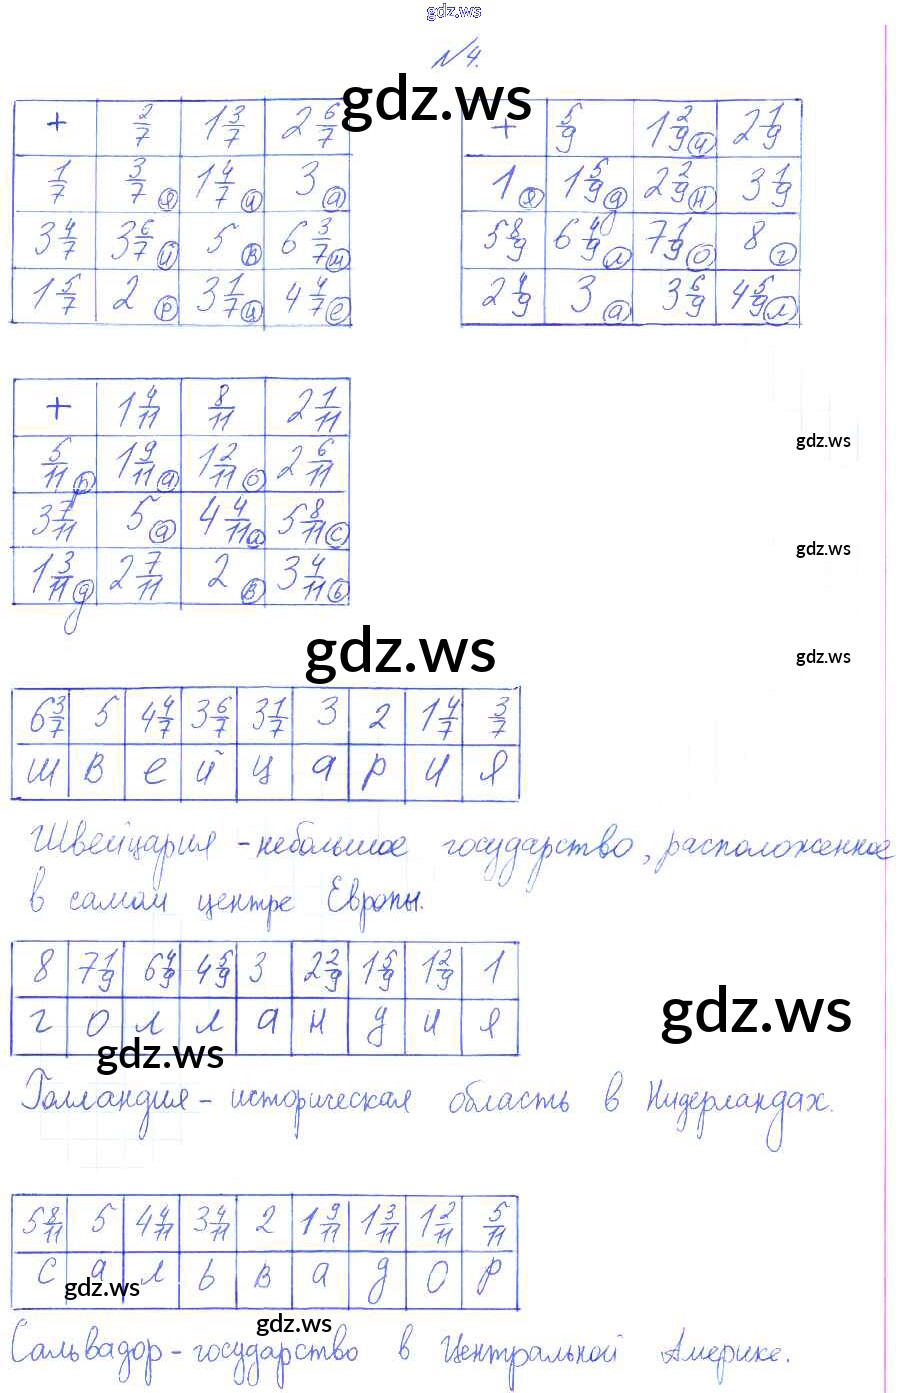 gdz.ws
№4.
gdz.ws
+ 2/7 1 3/7 2 6/7
1/7 3/7 я 1 4/7 и 3 а
3 4/7 3 6/7 й 5 в 6 3/7 ш
1 5/7 2 р 3 1/7 ц 4 4/7 е
+ 5/9 1 2/9 и 2 1/9
1 я 1 5/9 д 2 2/9 н 3 1/9
5 8/9 6 4/9 л 7 1/9 о 8 г
2 4/9 3 а 3 6/9 4 5/9 л
+ 1 4/11 8/11 2 1/11
5/11 р 1 9/11 а 1 2/11 о 2 6/11
3 7/11 5 а 4 4/11 л 5 8/11 с
1 3/11 д 2 7/11 2 в 3 4/11 ь
gdz.ws
gdz.ws
gdz.ws
gdz.ws
6 3/7 5 4 4/7 3 6/7 3 1/7 3 2 1 4/7 3/7
ш в е й ц а р и я
Швейцария - небольшое государство, расположенное
в самом центре Европы.
8 7 1/9 6 4/9 4 5/9 3 2 2/9 1 5/9 1 2/9 1
г о л л а н д и я
gdz.ws
gdz.ws
Голландия - историческая область в Нидерландах.
5 8/11 5 4 4/11 3 4/11 2 1 9/11 1 3/11 1 2/11 5/11
с а л ь в а д о р
gdz.ws
gdz.ws
Сальвадор - государство в Центральной Америке.